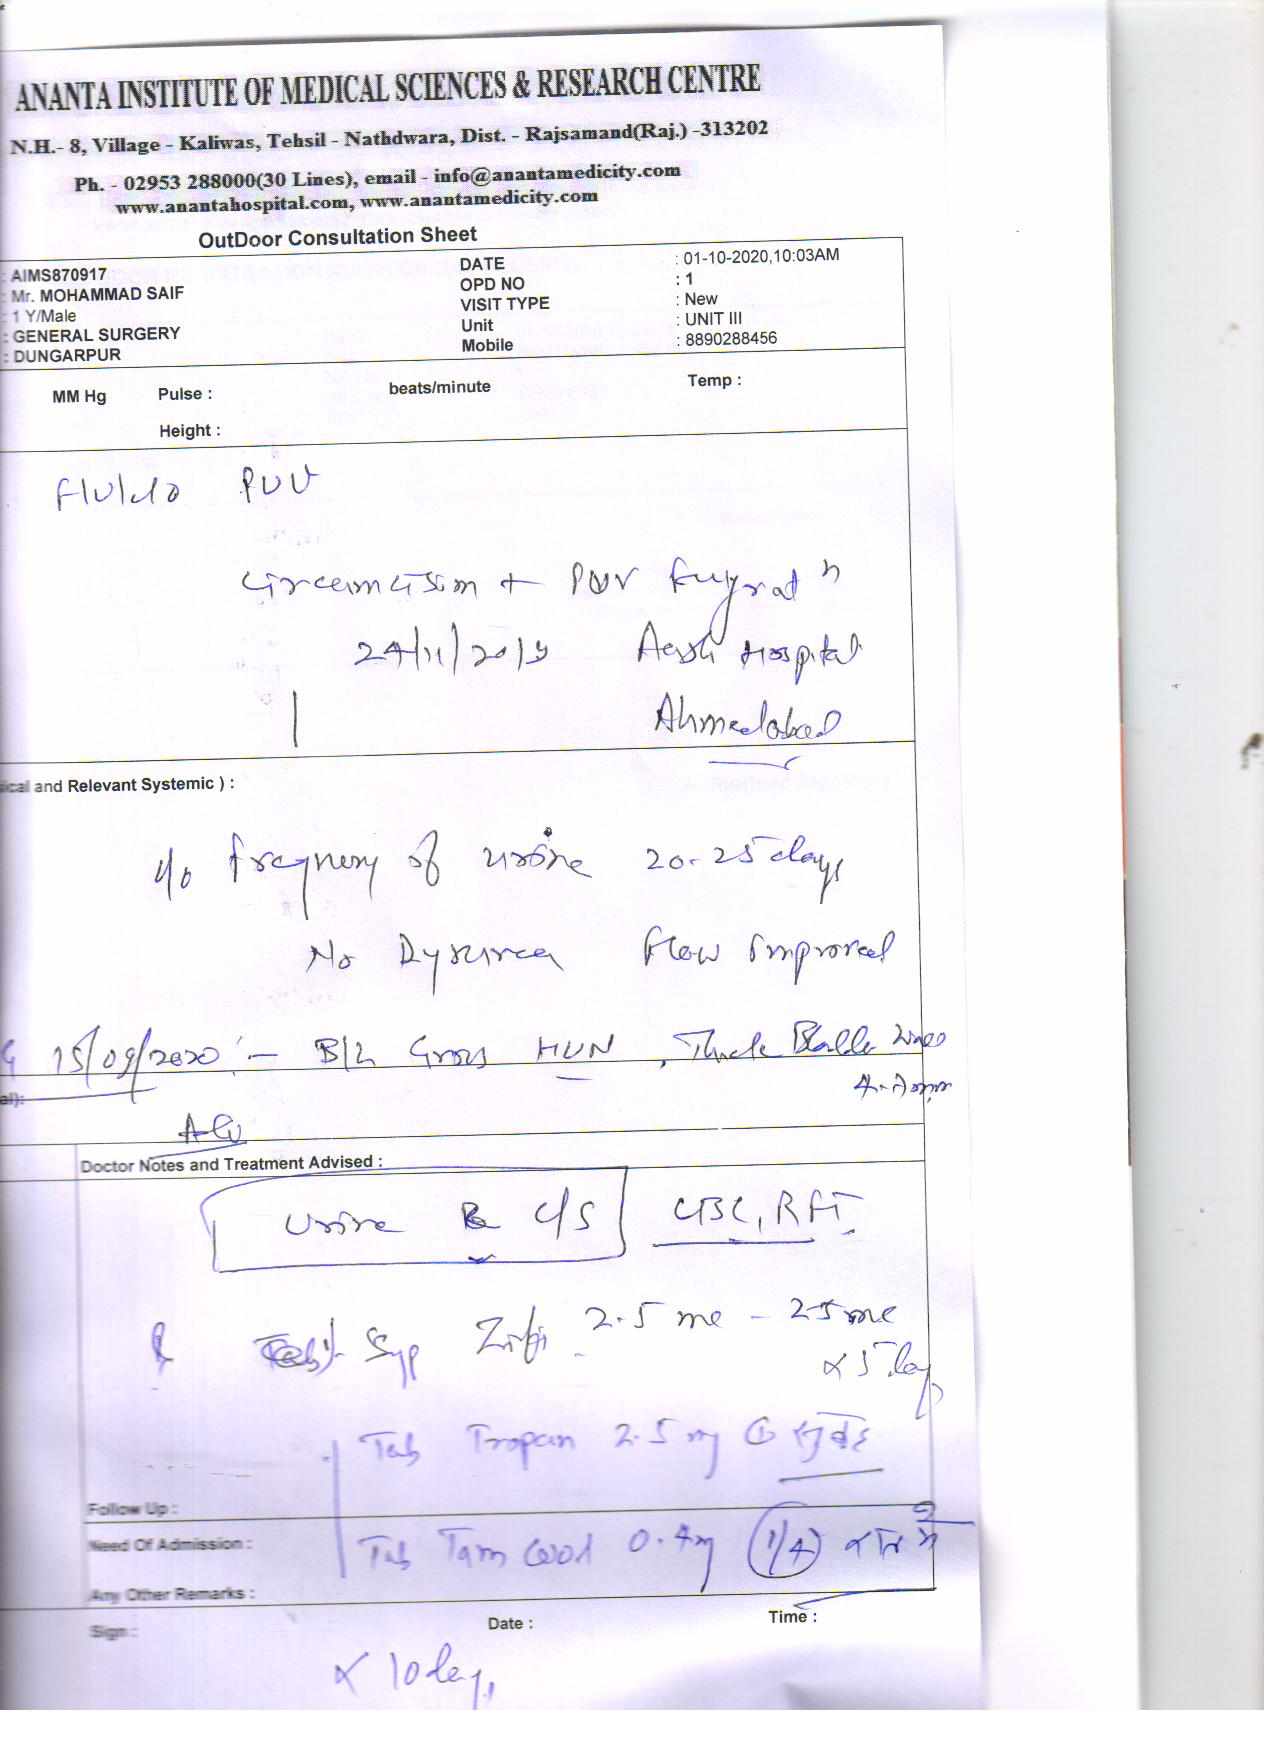 ANANTA INSTITUTE OF MEDICAL SCIENCES & RESEARCH CENTRE
N.H.- 8, Village - Kaliwas, Tehsil - Nathdwara, Dist. - Rajsamand(Raj.) -313202
Ph. - 02953 288000(30 Lines), email - info@anantamedicity.com
www.anantahospital.com, www.anantamedicity.com
OutDoor Consultation Sheet
: AIMS870917 DATE : 01-10-2020,10:03AM
: Mr. MOHAMMAD SAIF OPD NO : 1
: 1 Y/Male VISIT TYPE : New
: GENERAL SURGERY Unit : UNIT III
: DUNGARPUR Mobile : 8890288456
MM Hg Pulse : beats/minute Temp :
Height :
PUV
Circumcision + PUV fulgrat n
24/11/2019 Hospital
Ahmedabad
ical and Relevant Systemic ) :
frequency of urine 20-25 days
No Dysurea flow improved
G 15/09/2020 :- B/L Gross HUN , Thick Bladder
al):
Adv
Doctor Notes and Treatment Advised :
Urine C/S CBC, RFT
Syp Zifi 2.5 ml - 2.5 ml
x 5 day
Tab Tropan 2.5 mg
Follow Up :
Need Of Admission :
Tab 0.4 mg (1/4)
Any Other Remarks :
Sign : Date : Time :
x 10 days